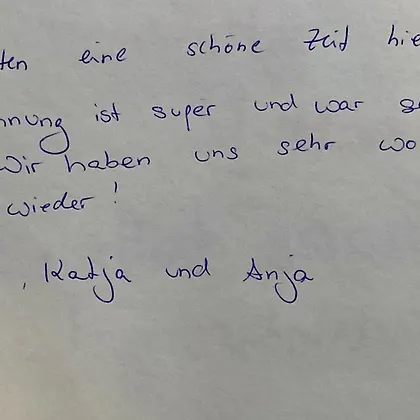 ten eine schöne Zeit hie
nnung ist super und war s
Wir haben uns sehr wo
wieder!
, Katja und Anja